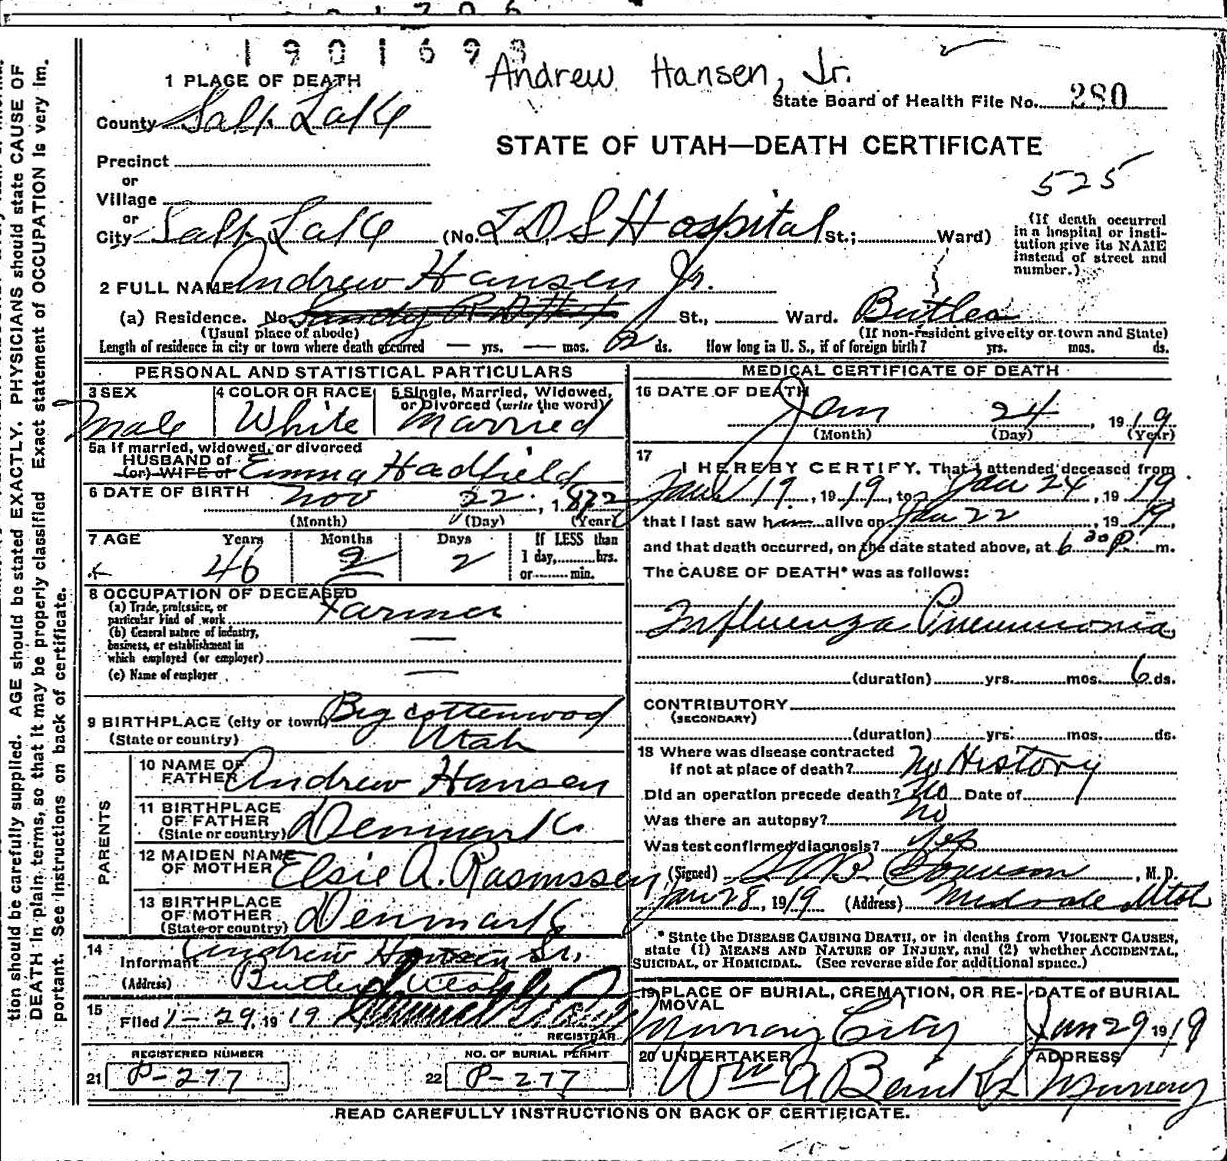 1901693
Andrew Hansen, Jr.
1 PLACE OF DEATH
State Board of Health File No. 280
County Salt Lake
STATE OF UTAH—DEATH CERTIFICATE
Precinct
or
525
Village
or
City Salt Lake (No. L D S Hospital St.; Ward)
(If death occurred in a hospital or institution give its NAME instead of street and number.)
2 FULL NAME Andrew Hansen Jr.
(a) Residence. No. Sandy R.D. St., Ward. Butler
(Usual place of abode) (If non-resident give city or town and State)
Length of residence in city or town where death occurred — yrs. — mos. 6 ds. How long in U. S., if of foreign birth? yrs. mos. ds.
PERSONAL AND STATISTICAL PARTICULARS
3 SEX 4 COLOR OR RACE 5 Single, Married, Widowed, or Divorced (write the word)
Male White Married
5a If married, widowed, or divorced
HUSBAND of
(or) WIFE of Emma Hadfield
6 DATE OF BIRTH Nov 22, 1872
(Month) (Day) (Year)
7 AGE Years Months Days If LESS than
46 2 2 1 day, hrs.
or min.
8 OCCUPATION OF DECEASED
(a) Trade, profession, or
particular kind of work Farmer
(b) General nature of industry,
business, or establishment in
which employed (or employer) —
(c) Name of employer —
9 BIRTHPLACE (city or town) Big cottonwood
(State or country) Utah
PARENTS
10 NAME OF
FATHER Andrew Hansen
11 BIRTHPLACE
OF FATHER
(State or country) Denmark
12 MAIDEN NAME
OF MOTHER Elsie A. Rasmussen
13 BIRTHPLACE
OF MOTHER
(State or country) Denmark
14
Informant Andrew Hansen Sr.
(Address) Butler Utah
15
Filed 1-29, 1919
REGISTRAR
REGISTERED NUMBER NO. OF BURIAL PERMIT
21 P-277 22 P-277
MEDICAL CERTIFICATE OF DEATH
16 DATE OF DEATH
Jan 24, 1919
(Month) (Day) (Year)
17
I HEREBY CERTIFY, That I attended deceased from
Jan 19, 1919, to Jan 24, 1919,
that I last saw him alive on Jan 22, 1919,
and that death occurred, on the date stated above, at 6 30 P. m.
The CAUSE OF DEATH* was as follows:
Influenza Pneumonia
(duration) yrs. mos. 6 ds.
CONTRIBUTORY
(SECONDARY)
(duration) yrs. mos. ds.
18 Where was disease contracted
if not at place of death? No History
Did an operation precede death? No Date of
Was there an autopsy? No
Was test confirmed diagnosis? Yes
(Signed) M. D.
Jan 28, 1919 (Address) Midvale Utah
* State the DISEASE CAUSING DEATH, or in deaths from VIOLENT CAUSES,
state (1) MEANS AND NATURE OF INJURY, and (2) whether ACCIDENTAL,
SUICIDAL, or HOMICIDAL. (See reverse side for additional space.)
19 PLACE OF BURIAL, CREMATION, OR RE- DATE of BURIAL
MOVAL
Murray City Jan 29 1919
20 UNDERTAKER ADDRESS
Wm A Murray
READ CAREFULLY INSTRUCTIONS ON BACK OF CERTIFICATE.
tion should be carefully supplied. AGE should be stated EXACTLY. PHYSICIANS should state CAUSE OF
DEATH in plain terms, so that it may be properly classified. Exact statement of OCCUPATION is very im-
portant. See instructions on back of certificate.